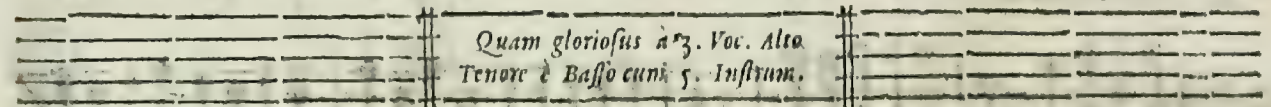 Quam gloriosus à 3. Voc. Alto
Tenore è Basso cum 5. Instrum.